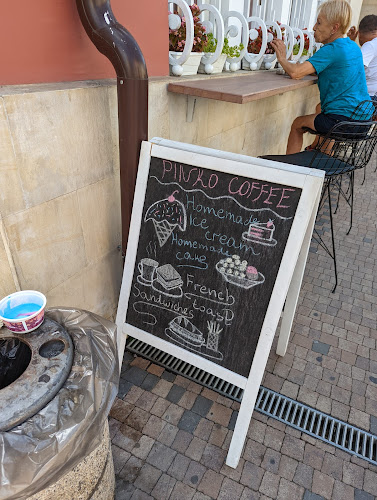 PINKO COFFEE
Homemade
Ice
cream
Homemade
cake
French
toast
Sandwiches